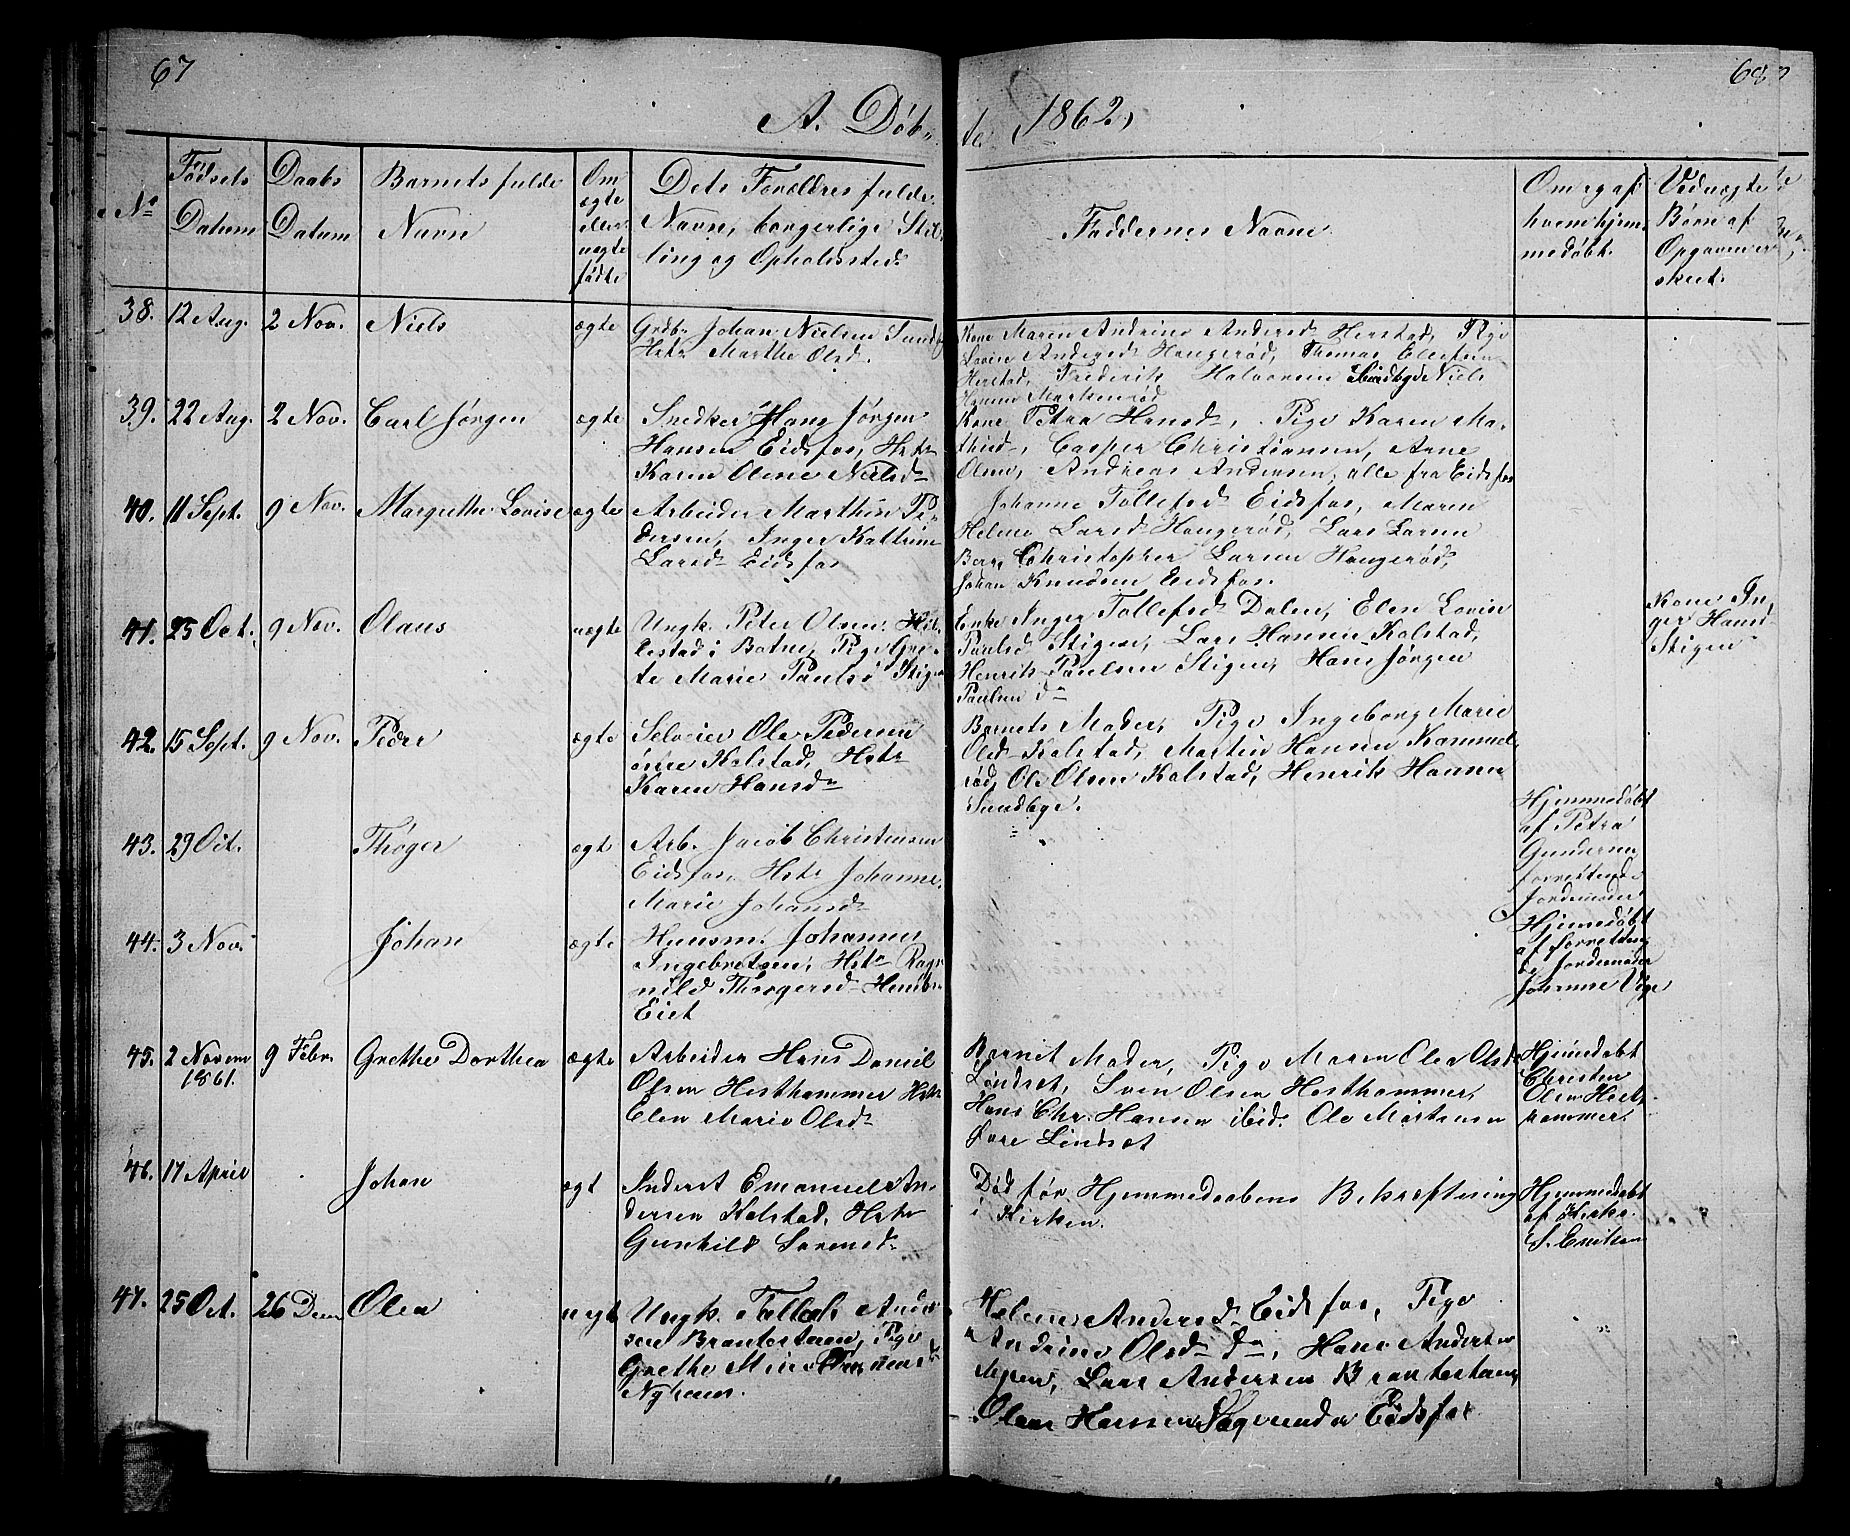 67
68
A. Døb-
te 1862,
No
Fødsels
Datum
Daabs
Datum
Barnets fulde
Navn
Om
ægte
eller
uægte
fødte
Dets Forældres fulde
Navn, borgerlige Stil-
ling og Opholdssted.
Faddernes Navne
Om og af
hvem hjem-
medøbt.
Ved uægte
Børn af
Opgaven er
skeet.
38. 12 Aug. 2 Nov. Niels ægte
Grdbr Johan Nielsen Sundby
Hstr Marthe Olsd.
Kone Maren Andrine Andersd Herstad, Pige
Lovise Andersd Haugerød, Thomas Ellefsen
Herstad, Frederik Halvorsen Sundbye Niels
Hansen
39. 22 Aug. 2 Nov. Carl Jørgen ægte
Snedker Hans Jørgen
Hansen Eidsfos, Hstr
Karen Oline Nielsd
Kone Petra Hansd, Pige Karen Ma-
thisd, Casper Christiansen, Arne
Olsen, Andreas Andersen, alle fra Eidsfos
40. 11 Sept. 9 Nov. Margrethe Lovise ægte
Arbeider Marthin Pe-
dersen, Inger Kattrine
Larsd Eidsfos
Johanne Tollefsd Eidsfos, Maren
Helene Larsd Haugerød, Lars Larsen
Berg Christopher Larsen Haugerød,
Johan Knudsen Eidsfos.
41. 25 Oct. 9 Nov. Olaus uægte
Ungk. Peter Olsen Hil-
lestad i Botne, Pige Gre-
te Marie Paulsd Stigen
Enke Inger Tollefsd Dalen, Elen Lovise
Paulsd Stigen, Lars Hansen Kolstad,
Henrik Paulsen Stigen, Hans Jørgen
Paulsen do
Kone In-
ger Hansd
Stigen
42. 15 Sept. 9 Nov. Peder ægte
Selveier Ole Pedersen
Kolstad, Hstr
Karen Hansd
Barnets Moder, Pige Ingeborg Marie
Olsd Kolstad, Martin Hansen Kammel-
rød, Ole Olsen Kolstad, Henrik Hansen
Sundbye.
43. 29 Oct. Thøger ægte
Arb. Jacob Christensen
Eidsfos, Hstr Johanne
Marie Johansd
Hjemmedøbt
af Petra
Gundersen
forrettende
Jordemoder
44. 3 Nov. Johan ægte
Huusm. Johannes
Ingebretsen, Hstr Rag-
nild Thøgersd
Eiet
Hjemmedøbt
af forretten-
de Jordemoder
45. 2 Novem 9 Febr. Grethe Dorthea ægte
1861.
Arbeider Hans Daniel
Olsen Hesthammer Hstr
Elen Marie Olsd
Barnet Moder, Pige Maren Olea Olsd
Lindset, Sven Olsen Hesthammer,
Hans Chr. Hansen ibid. Ole Mortensen
Øvre Lindset
Hjemdøbt
Christen
Olsen Hest-
hammer
46. 17 April Johan ægt
Inderst Emanuel An-
dersen Kolstad, Hstr
Gunhild Sørensd
Død før Hjemmedaabens Bekræftelse
i Kirken.
Hjemmedøbt
af Kirkes.
S. Eriksen
47. 25 Oct. 26 Decm Olea uegt
Ungk. Anders-
sen Brantestuen, Pige
Grethe
Nyhuus.
Helene Andersd Eidsfos, Pige
Andrine Olsd do, Hans Andersen
Lars Andersen Brantestuen
Olaus Hansen Eidsfos